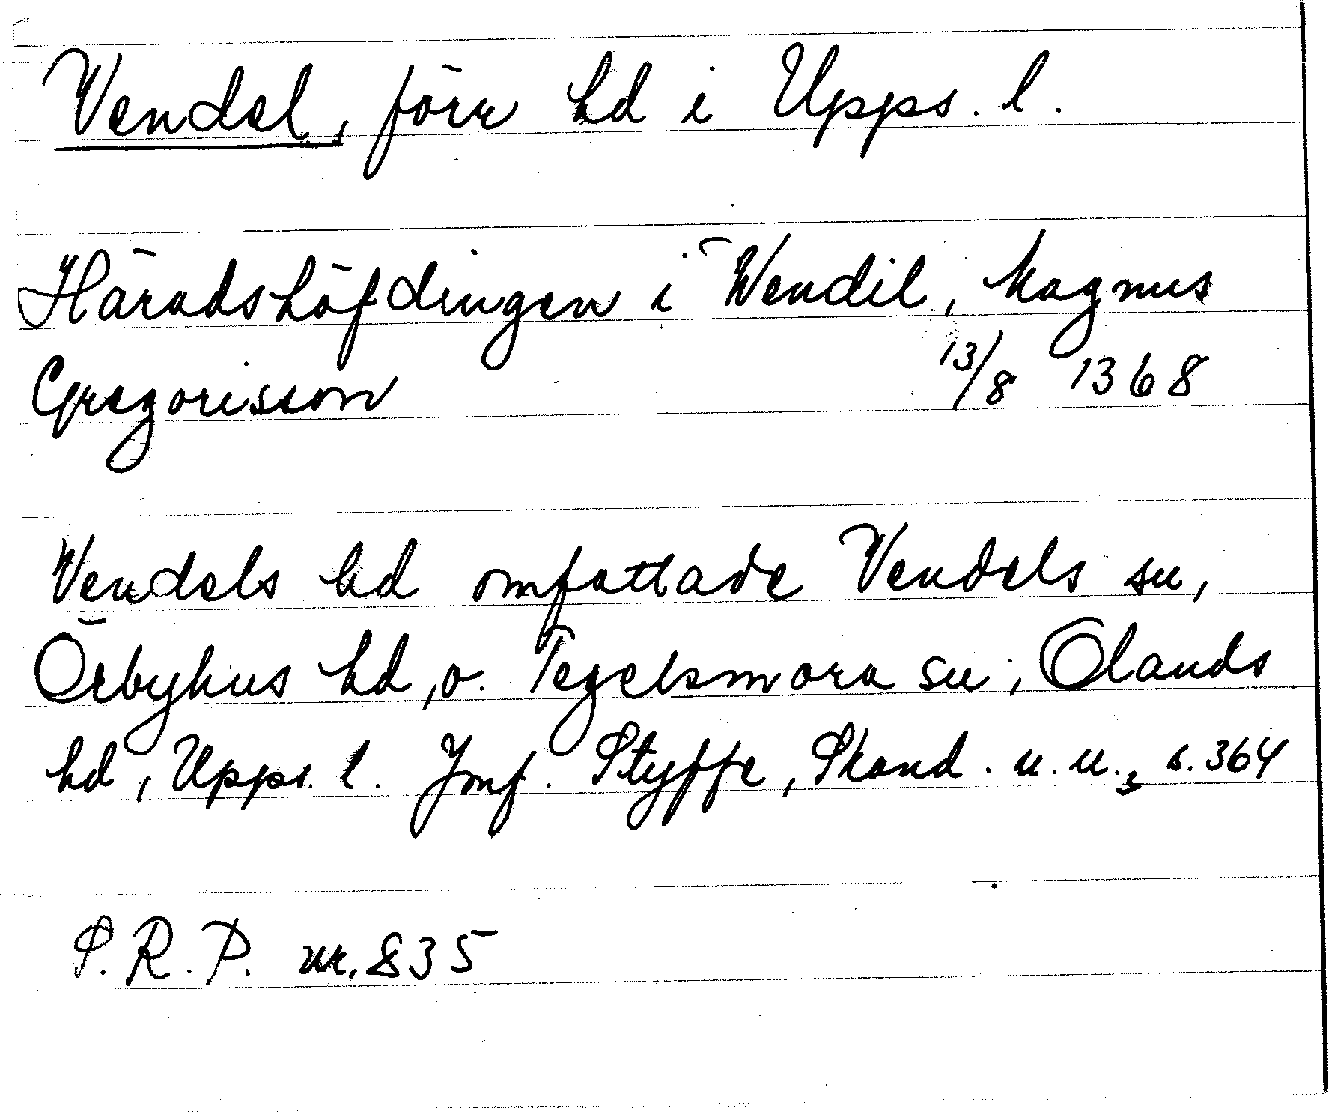 Vendel, förr hd i Upps. l.
Häradshöfdingen i Wendil, Magnus
Gregorisson 13/8 1368
Vendels hd omfattade Vendels sn,
Örbyhus hd, o. Tegelsmora sn, Olands
hd, Upps. l. Jmf. Styffe, Skand. u. u.3 s. 364
S.R.P. nr. 835